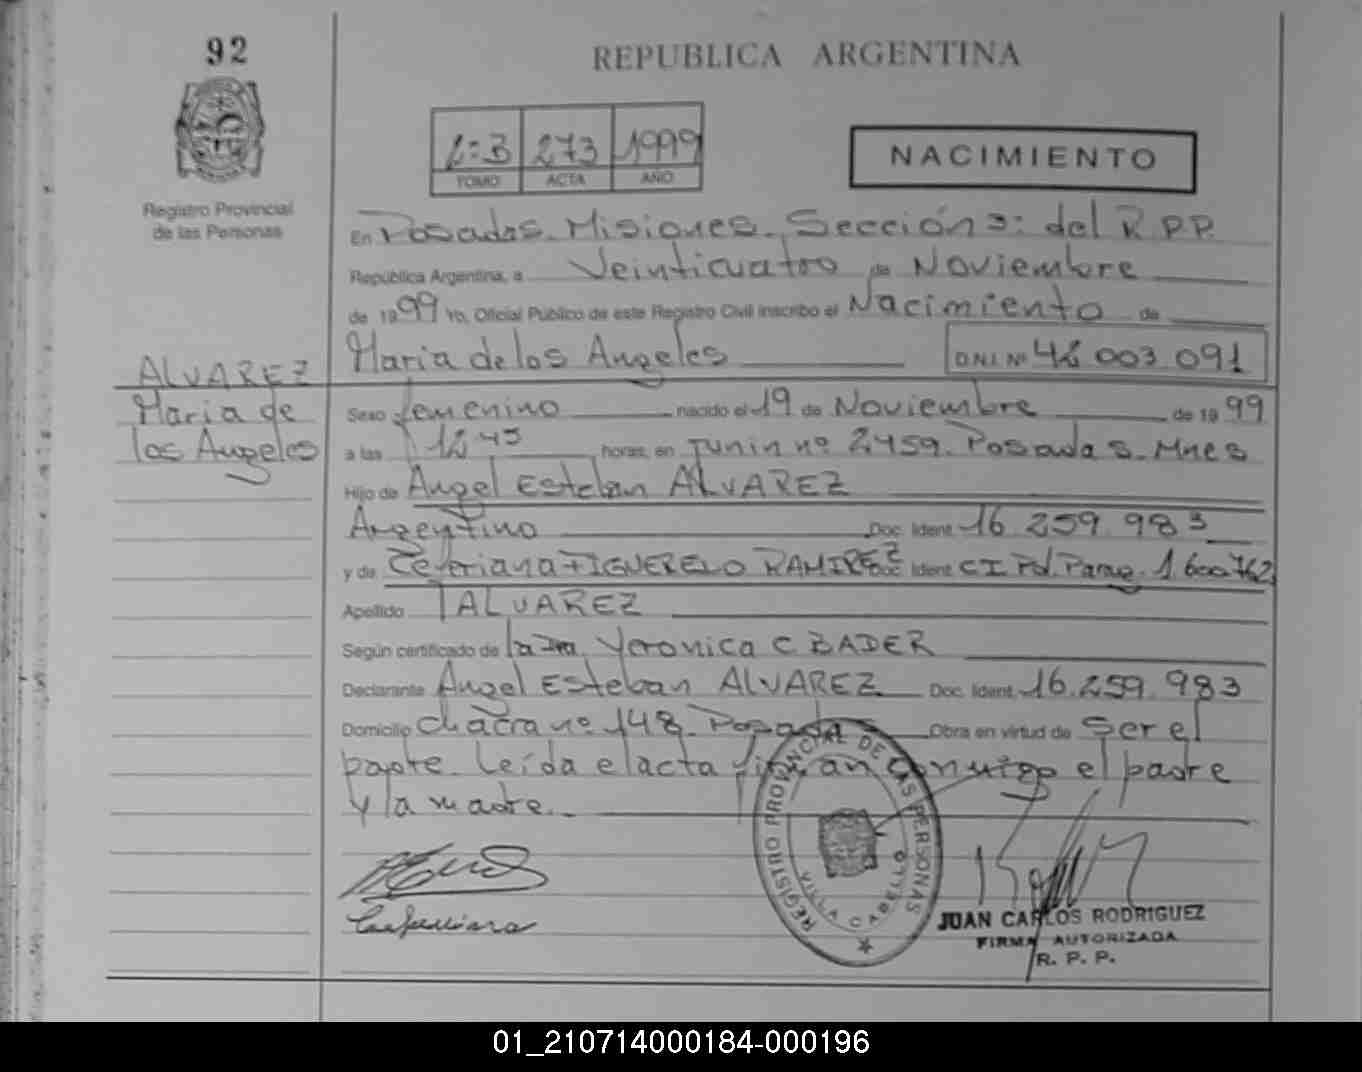 92
REPUBLICA ARGENTINA
2:B 273 1999
TOMO ACTA AÑO
NACIMIENTO
Registro Provincial
de las Personas
En Posadas Misiones. Sección 3: del R.P.P.
República Argentina, a Veinticuatro de Noviembre
de 1999 Yo, Oficial Público de este Registro Civil inscribo el Nacimiento de
Maria de los Angeles D.N.I. Nº 42 003 091
ALVAREZ
Maria de
los Angeles
Sexo femenino nacido el 19 de Noviembre de 1999
a las 12 45 horas, en Junin nº 2459. Posadas. Mnes
Hijo de Angel Esteban ALVAREZ
Argentino Doc. Ident. 16.259.983
y de Ceferiana RAMIREZ Doc. Ident. CI Pol. Parag. 1.600.762
Apellido ALVAREZ
Según certificado de la Dra. Veronica C BADER
Declarante Angel Esteban ALVAREZ Doc. Ident. 16.259.983
Domicilio chacra nº 148. Posadas Obra en virtud de Ser el
padre. Leída el acta firman conmigo el padre
y la madre.
REGISTRO PROVINCIAL DE LAS PERSONAS
VILLA CABELLO
JUAN CARLOS RODRIGUEZ
FIRMA AUTORIZADA
R. P. P.
01_210714000184-000196